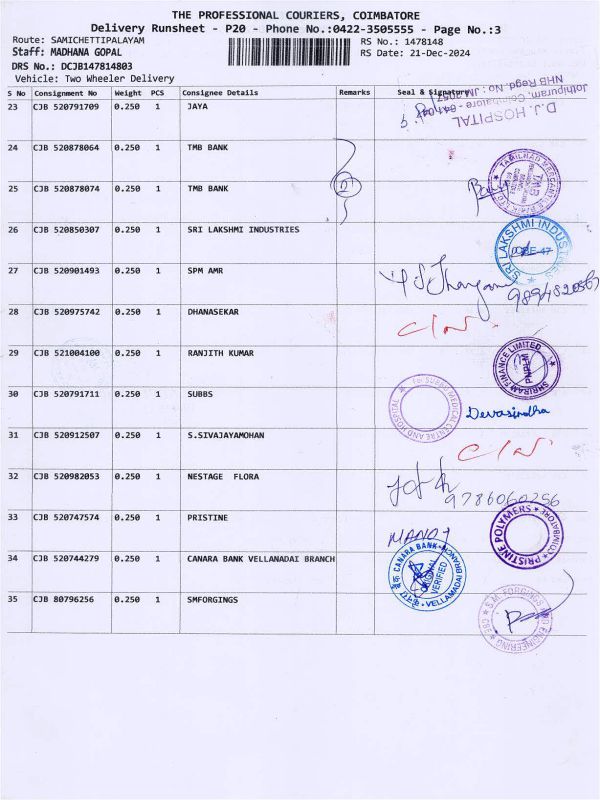 THE PROFESSIONAL COURIERS, COIMBATORE
Delivery Runsheet - P20 - Phone No.:0422-3505555 - Page No.:3
Route: SAMICHETTIPALAYAM
RS No.: 1478148
Staff: MADHANA GOPAL
RS Date: 21-Dec-2024
DRS No.: DCJB147814803
Vehicle: Two Wheeler Delivery
S No Consignment No Weight PCS Consignee Details Remarks Seal & Signature
23 CJB 520791709 0.250 1 JAYA
D.J. HOSPITAL
Jothipuram, Coimbatore - 641 047
NHB Regd. No.:
24 CJB 520878064 0.250 1 TMB BANK
25 CJB 520878074 0.250 1 TMB BANK
TMB
26 CJB 520850307 0.250 1 SRI LAKSHMI INDUSTRIES
SRI LAKSHMI INDUSTRIES
CBE-47
27 CJB 520901493 0.250 1 SPM AMR
28 CJB 520975742 0.250 1 DHANASEKAR
29 CJB 521004100 0.250 1 RANJITH KUMAR
SHRIRAM FINANCE LIMITED
PNPLM
30 CJB 520791711 0.250 1 SUBBS
For SUBBS MEDICAL CENTRE AND HOSPITAL
Devasindha
31 CJB 520912507 0.250 1 S.SIVAJAYAMOHAN
32 CJB 520982053 0.250 1 NESTAGE FLORA
9786060256
33 CJB 520747574 0.250 1 PRISTINE
PRISTINE POLYMERS
COIMBATORE
34 CJB 520744279 0.250 1 CANARA BANK VELLANADAI BRANCH
MANOJ
CANARA BANK
VELLAMADAI BRANCH
ORIGINAL VERIFIED
35 CJB 80796256 0.250 1 SMFORGINGS
S.M. FORGINGS AND ENGINEERING
CBE